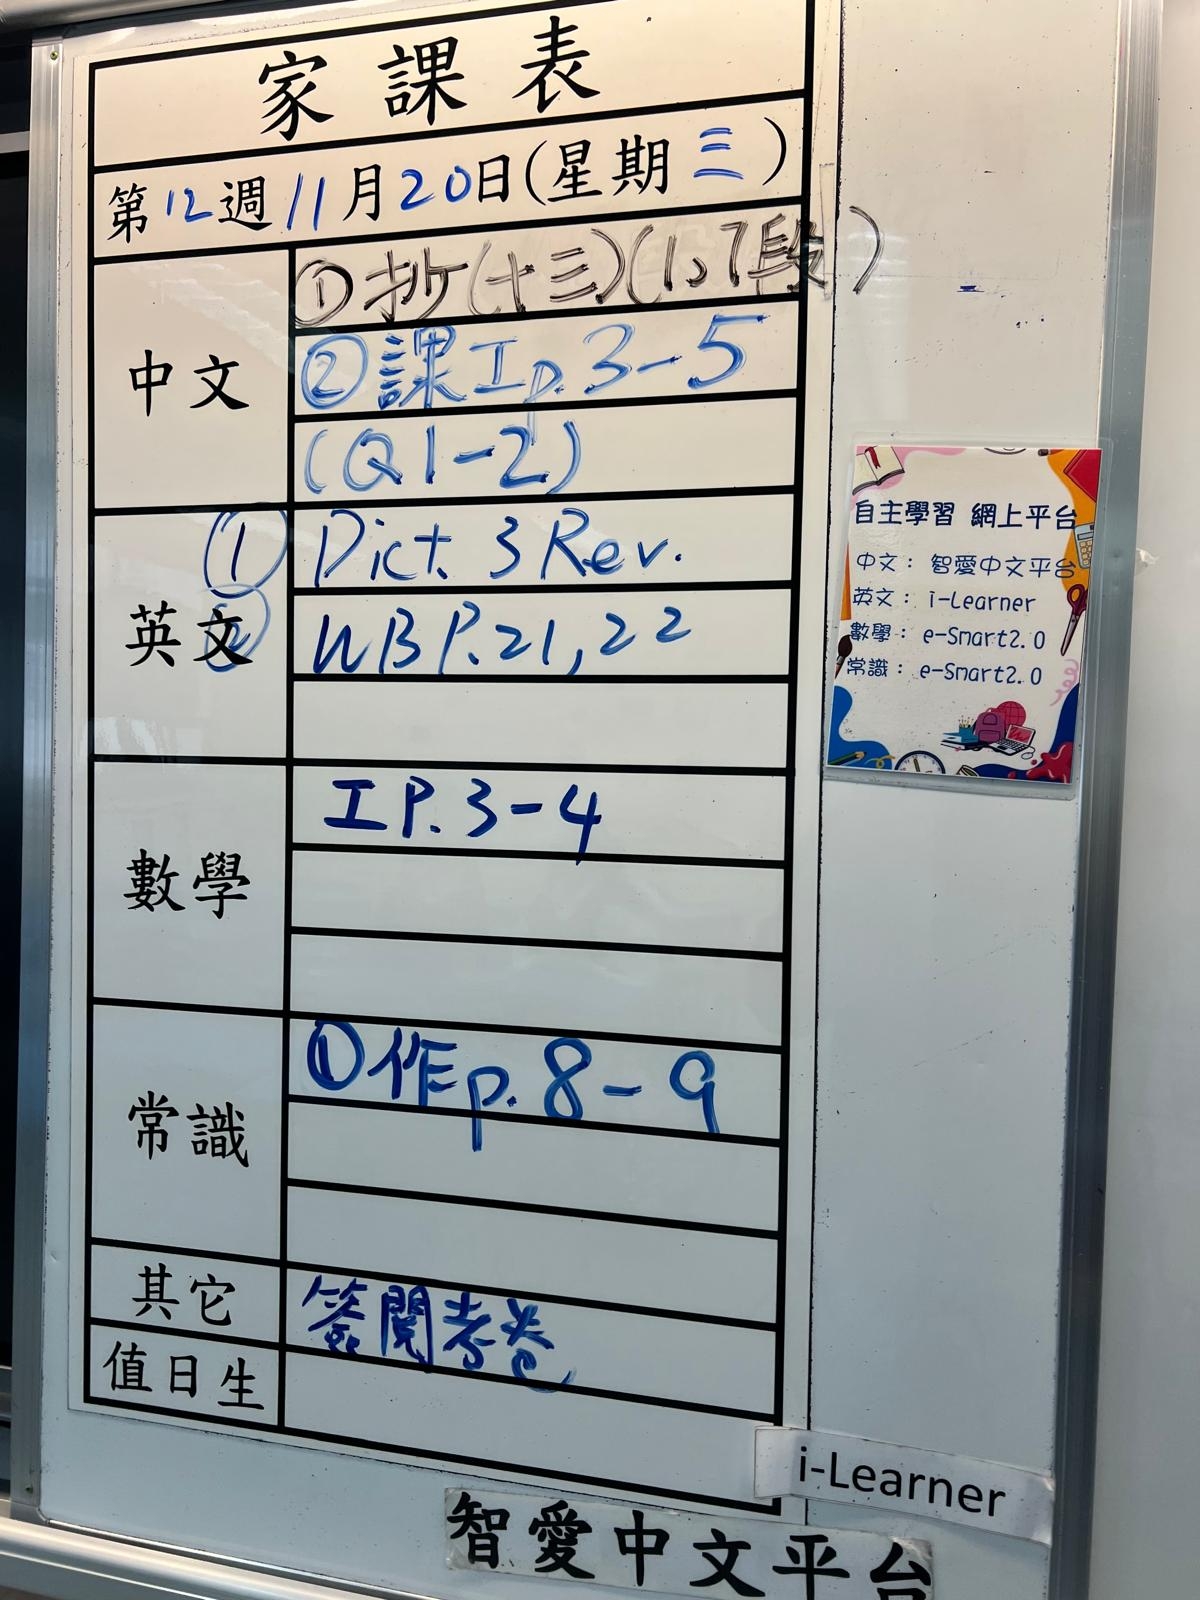 家課表
第12週11月20日(星期三)
中文
①抄(十三)(1,7段)
②課工p.3-5
(Q1-2)
英文
①Dict. 3 Rev.
②WB P.21,22
數學
工P.3-4
常識
①作p.8-9
其它
簽閱考卷
值日生
自主學習 網上平台
中文：智愛中文平台
英文：i-Learner
數學：e-Smart2.0
常識：e-Smart2.0
i-Learner
智愛中文平台